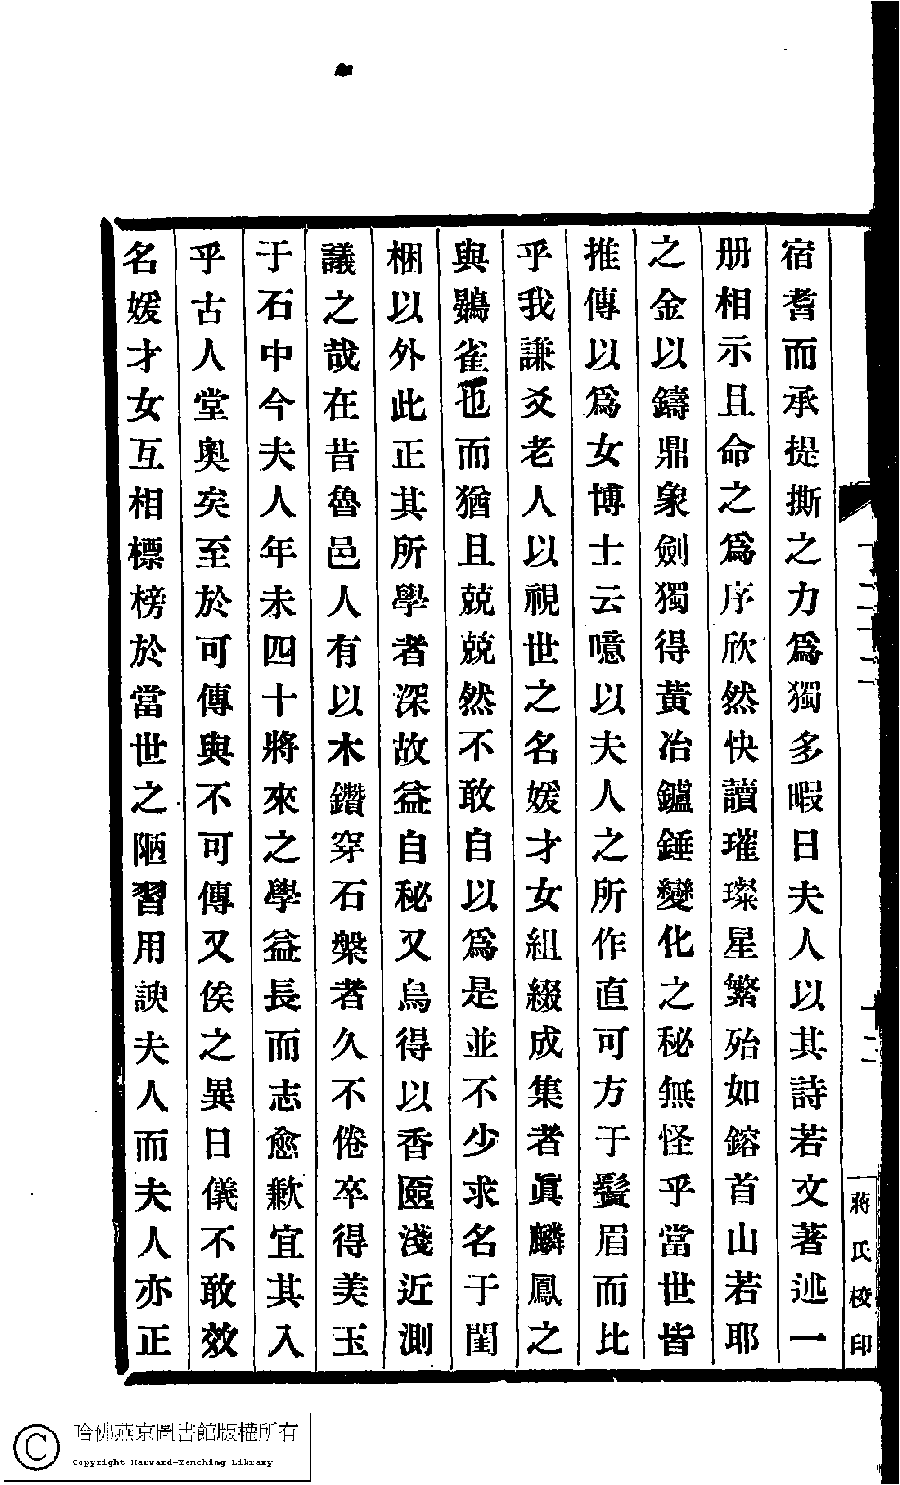 宿耆而承提撕之力爲獨多暇日夫人以其詩若文著述一
册相示且命之爲序欣然快讀璀璨星繁殆如鎔首山若耶
之金以鑄鼎象劍獨得黃冶鑪錘變化之秘無怪乎當世皆
推傳以爲女博士云噫以夫人之所作直可方于鬢眉而比
乎我謙爻老人以視世之名媛才女組綴成集者眞麟鳳之
與鷃雀也而猶且兢兢然不敢自以爲是並不少求名于閨
梱以外此正其所學者深故益自秘又烏得以香匳淺近測
議之哉在昔魯邑人有以木鑽穿石槃者久不倦卒得美玉
于石中今夫人年未四十將來之學益長而志愈歉宜其入
乎古人堂奧矣至於可傳與不可傳又俟之異日儀不敢效
名媛才女互相標榜於當世之陋習用諛夫人而夫人亦正
蔣氏校印
哈佛燕京圖書館版權所有
Copyright Harvard-Yenching Library